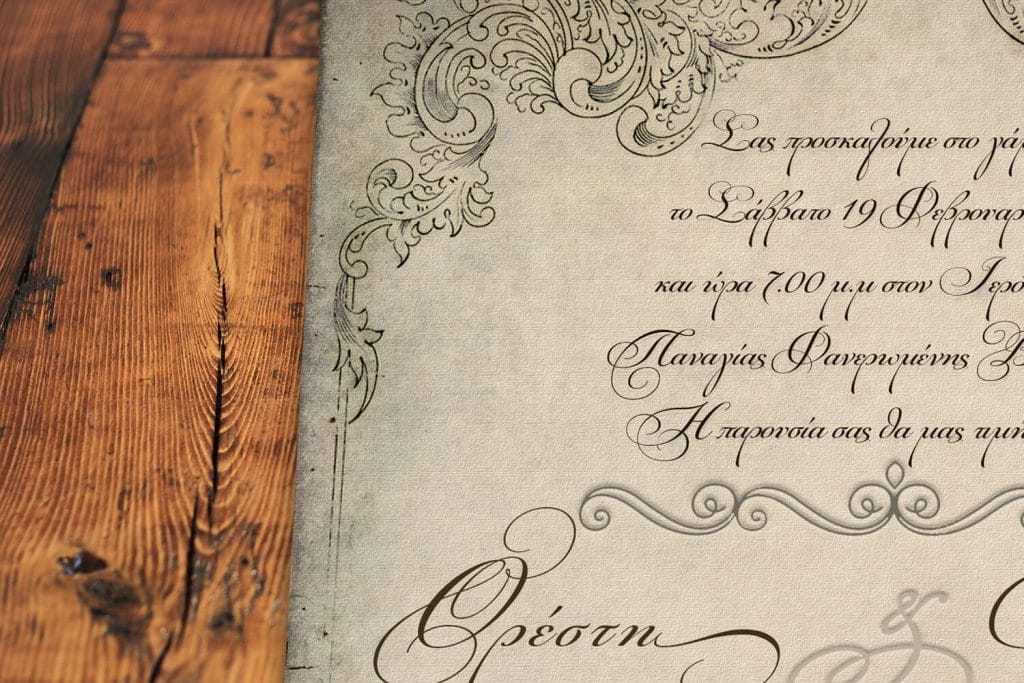 Σας προσκαλούμε στο γά
το Σάββατο 19 Φεβρουαρ
και ώρα 7.00 μ.μ στον Ιερό
Παναγίας Φανερωμένης
Η παρουσία σας θα μας τιμή
Ορέστη &